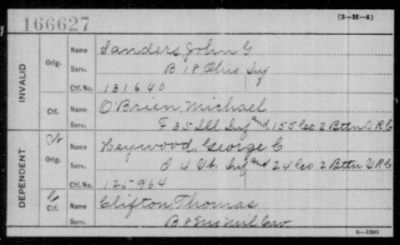 166627
(3-M-4)
INVALID
Orig.
Name Sanders, John G
Serv. B 18 Ohio Inf
Ctf. No. 131640
Ctf.
Name O'Brien, Michael
Serv. F 35 Ill Inf and 155 Co 2 Battn V.R.C
DEPENDENT
Orig.
Name Heywood George C
Serv. I 4 Vt Inf and 24 Co 2 Battn V.R.C
Ctf. No. 125964
Ctf.
Name Clifton, Thomas
Serv. Mil Cav